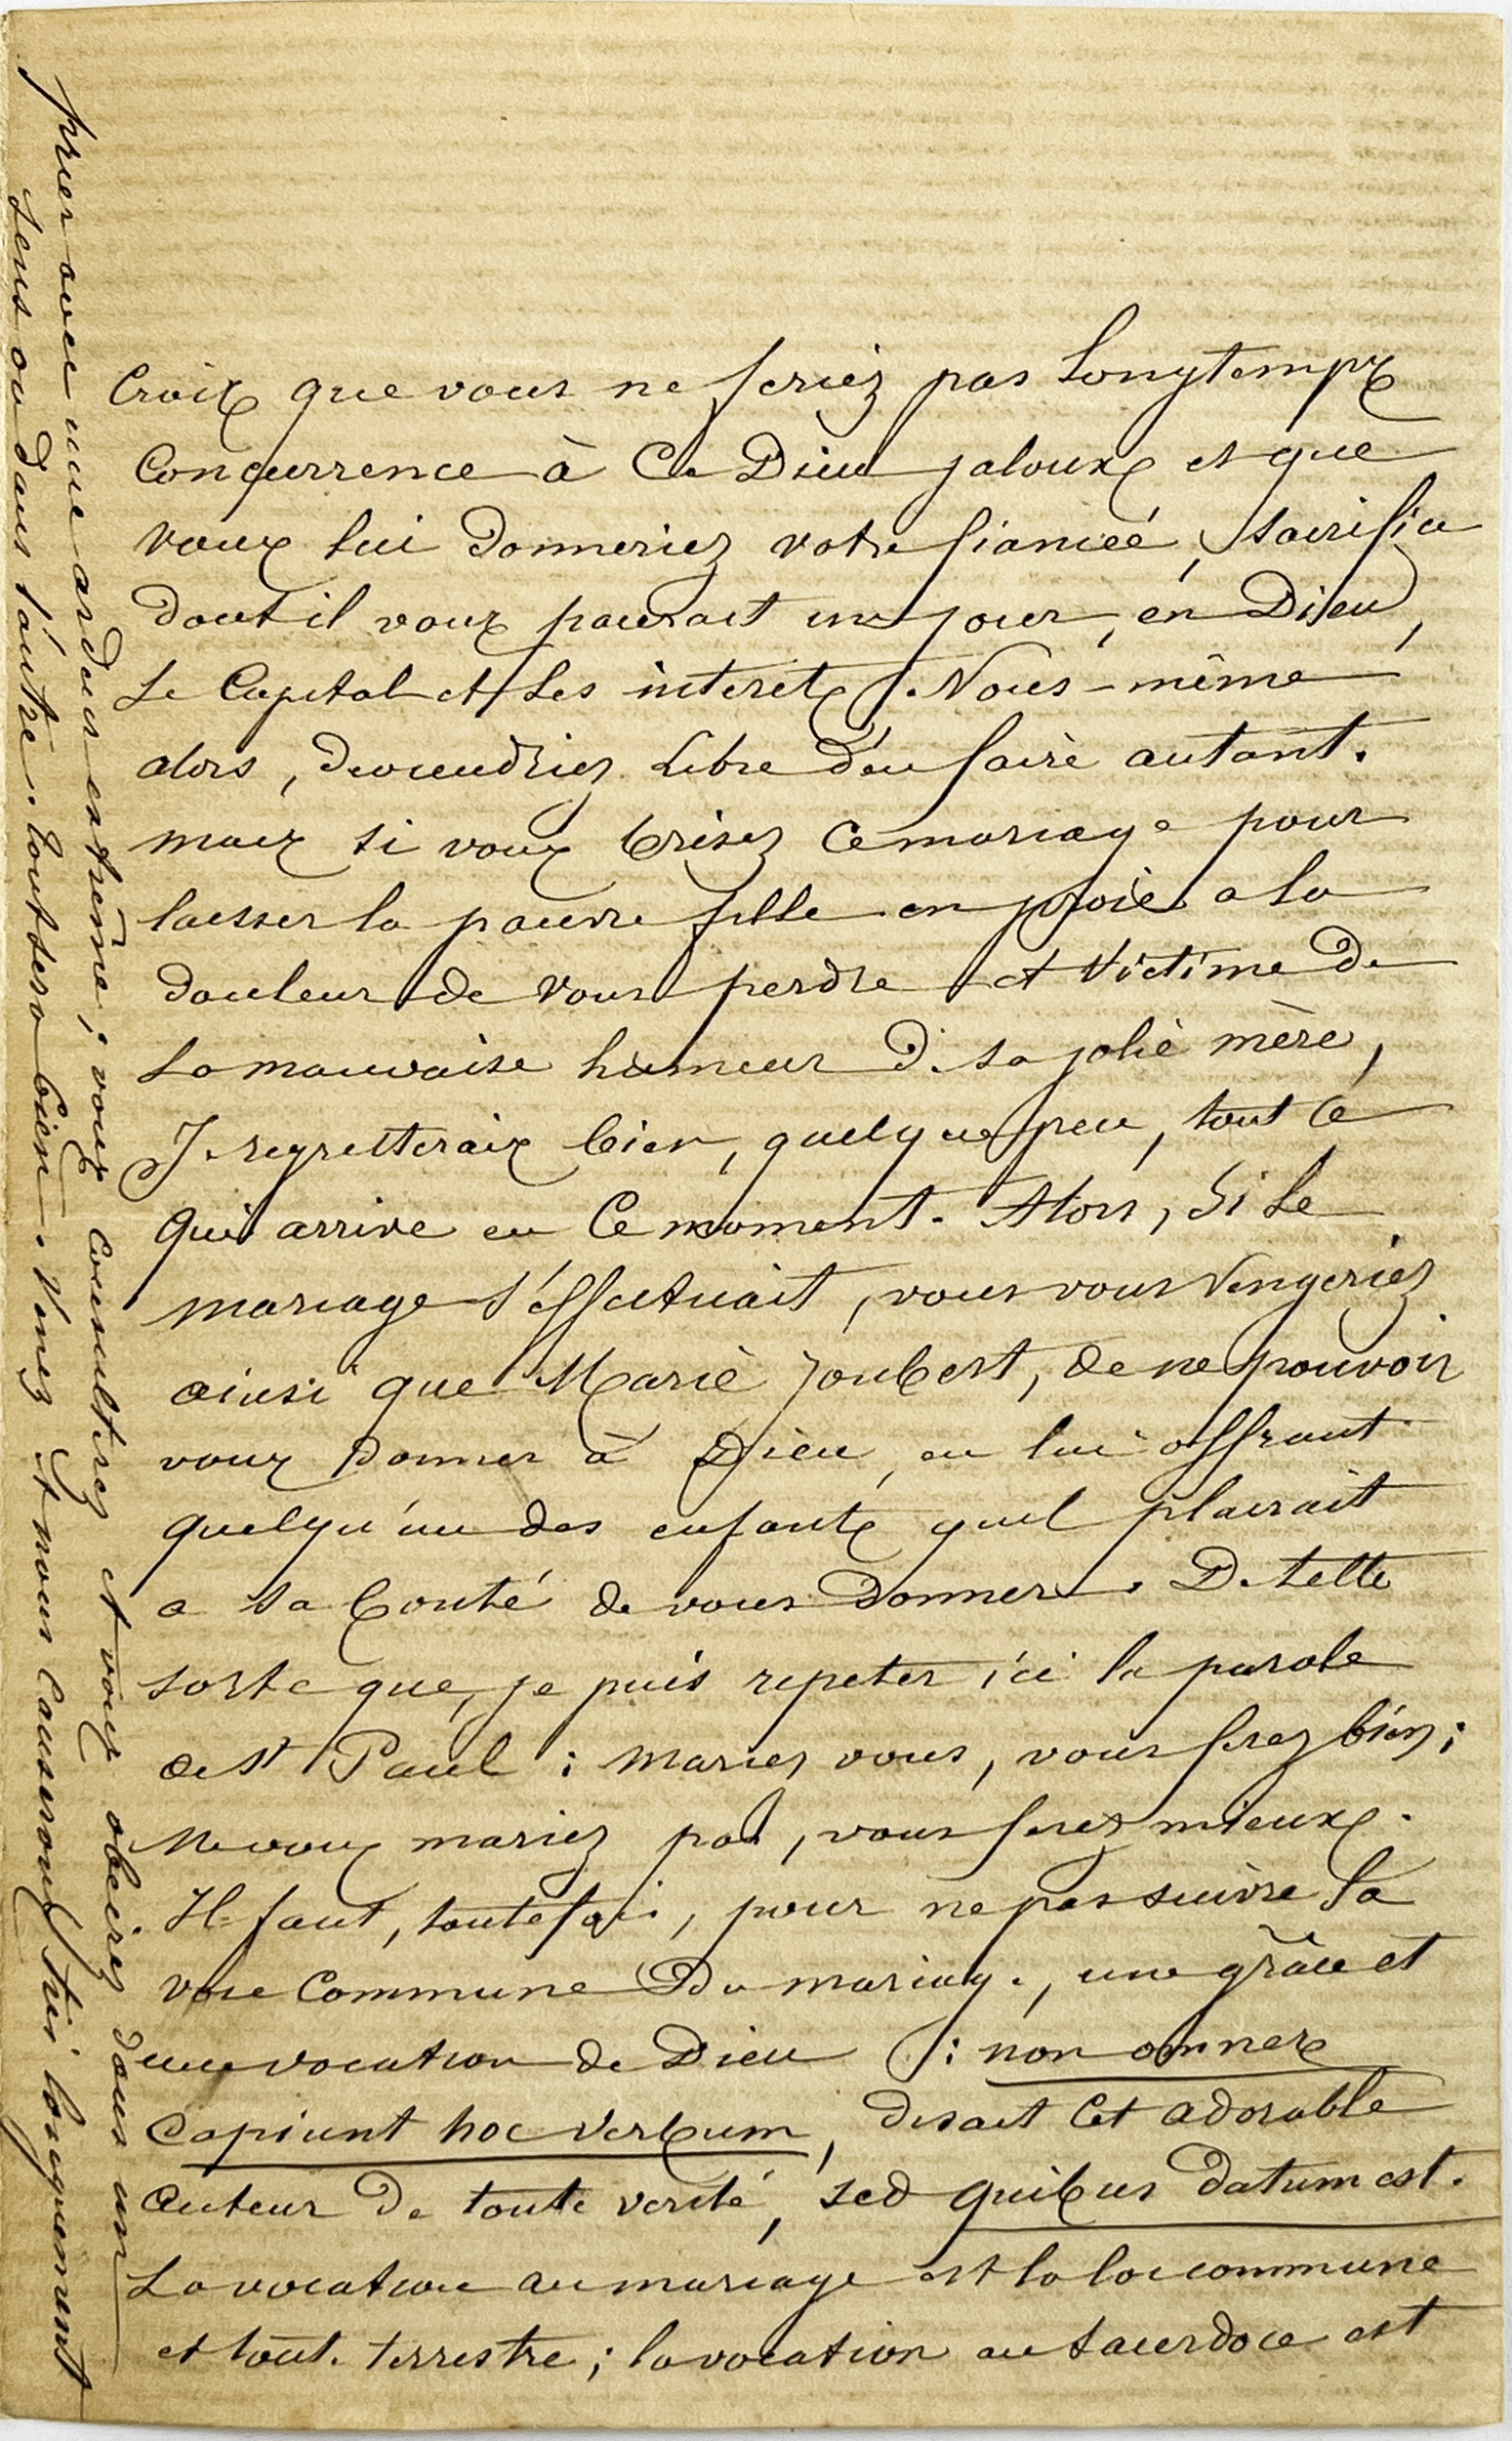 Croix que vous ne feriez pas longtemps
Concurrence à Ce Dieu jaloux et que
vous lui donneriez votre fiancée, sacrifice
dont il vous paierait un jour, en Dieu,
le Capital et les interets. Nous-même
alors, deviendriez libre d'en faire autant.
mais si vous brisez ce mariage pour
laisser la pauvre fille en proie a la
douleur de vous perdre et victime de
la mauvaise humeur de sa jolie mère,
Je regretterais bien, quelque peu, tout ce
qui arrive en ce moment. Alors, si le
mariage s'effectuait, vous vous vengeriez
ainsi que Marie Joubert, de ne pouvoir
vous donner à Dieu, en lui offrant
quelqu'un des enfants qu'il plairait
a sa bonté de vous donner. De telle
sorte que, je puis repeter ici la parole
de St Paul : mariez vous, vous ferez bien ;
Ne vous mariez pas, vous ferez mieux.
Il faut, toutefois, pour ne pas suivre la
voie Commune du mariage, une grâce et
une vocation de Dieu : non omnes
capiunt hoc verbum, disait Cet adorable
auteur de toute verité, sed quibus datum est.
La vocation au mariage est la loi commune
et toute terrestre ; la vocation au sacerdoce est
prier avec une ardeur extrême ; vous consulterez et vous obeirez dans un
sens ou dans l'autre. Tout sera bien. Venez et nous causerons très longuement